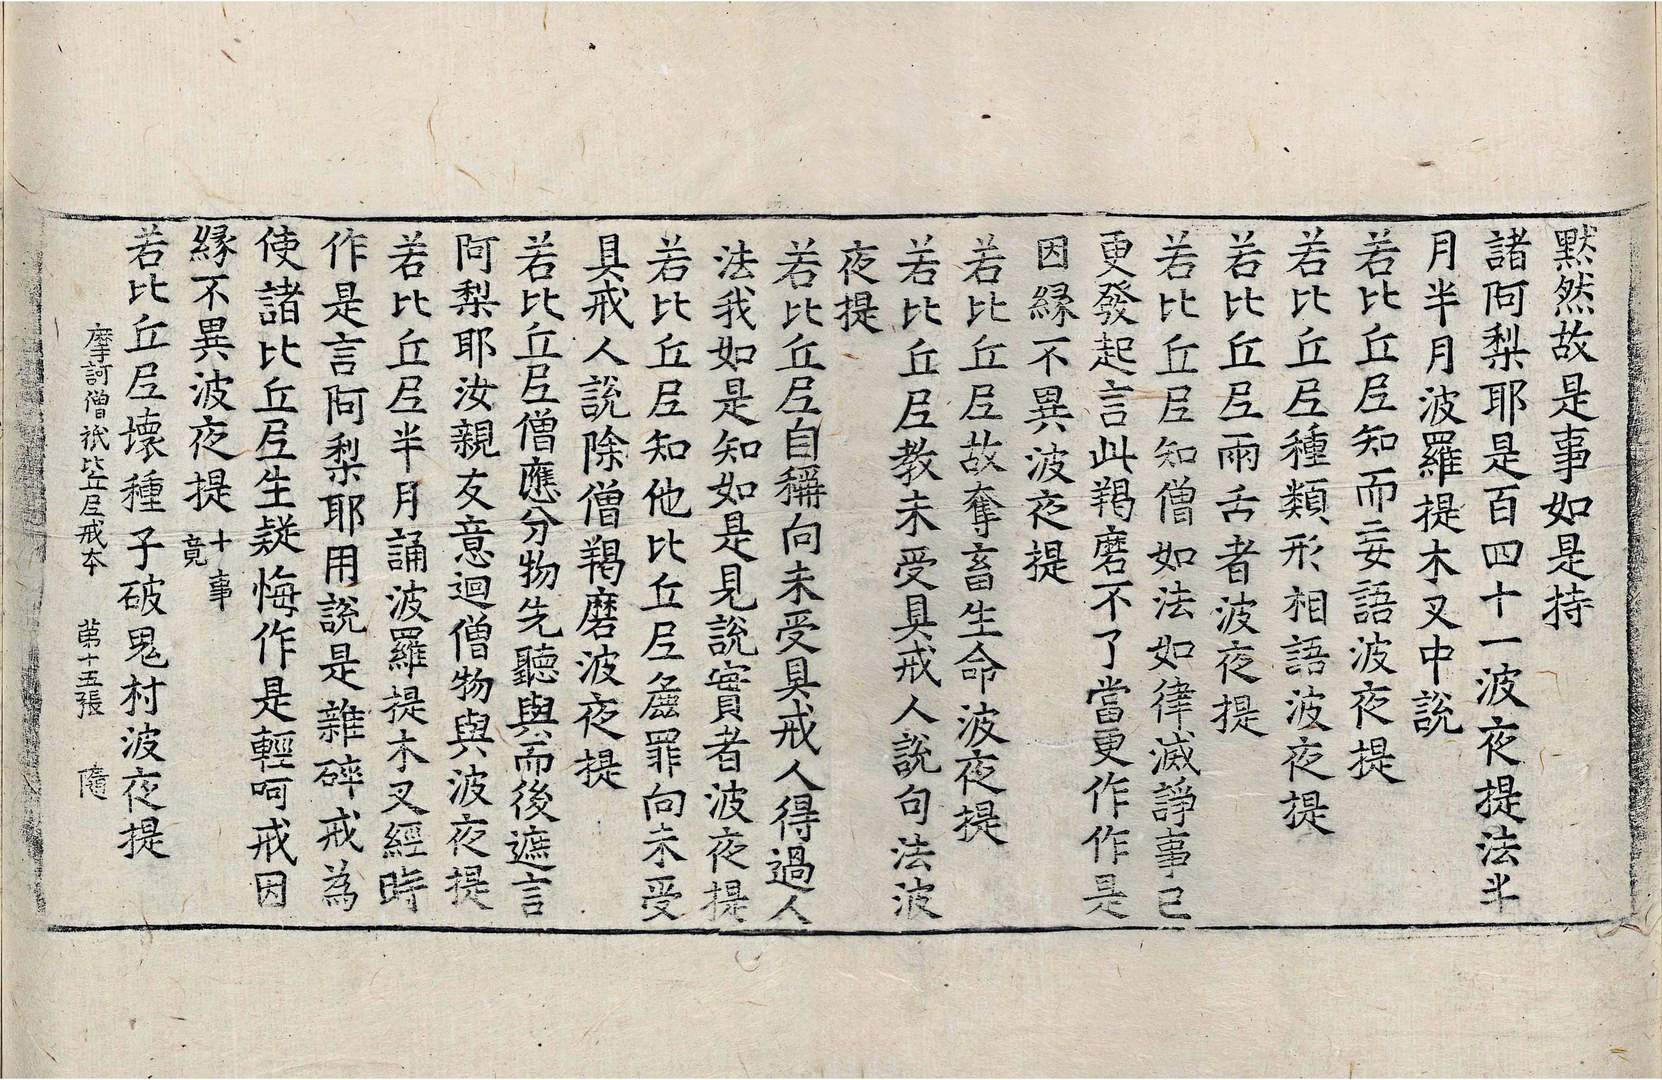 黙然故是事如是持
諸阿梨耶是百四十一波夜提法半
月半月波羅提木叉中說
若比丘尼知而妄語波夜提
若比丘尼種類形相語波夜提
若比丘尼兩舌者波夜提
若比丘尼知僧如法如律滅諍事已
更發起言此羯磨不了當更作作是
因緣不異波夜提
若比丘尼故奪畜生命波夜提
若比丘尼教未受具戒人說句法波
夜提
若比丘尼自稱向未受具戒人得過人
法我如是知如是見說實者波夜提
若比丘尼知他比丘尼麁罪向未受
具戒人說除僧羯磨波夜提
若比丘尼僧應分物先聽與而後遮言
阿梨耶汝親友意迴僧物與波夜提
若比丘尼半月誦波羅提木叉經時
作是言阿梨耶用說是雜碎戒為
使諸比丘尼生疑悔作是輕呵戒因
緣不異波夜提 十事竟
若比丘尼壞種子破鬼村波夜提
摩訶僧祇比丘尼戒本 第十五張 隨